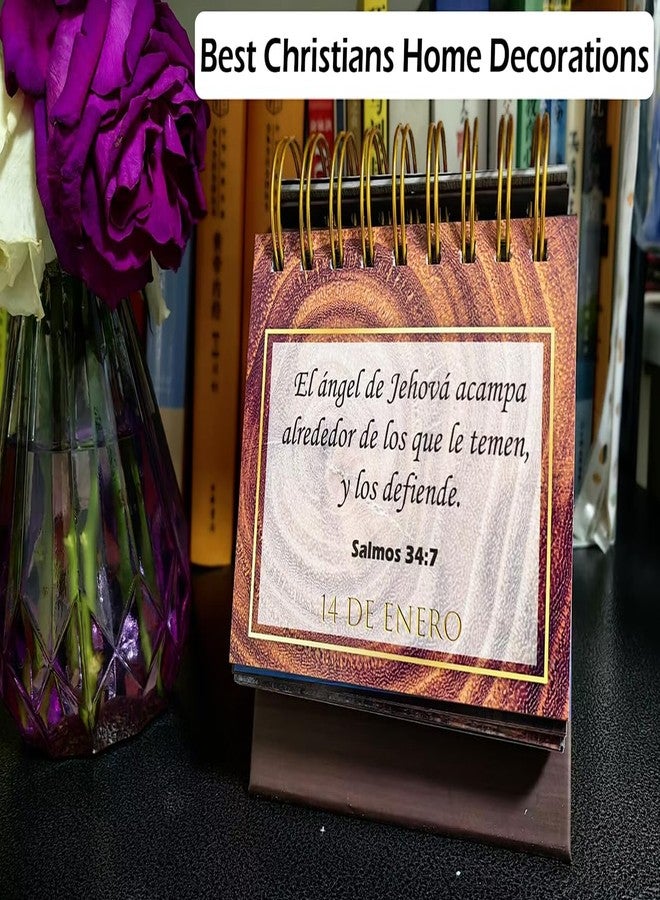 Best Christians Home Decorations
El ángel de Jehová acampa
alrededor de los que le temen,
y los defiende.
Salmos 34:7
14 DE ENERO